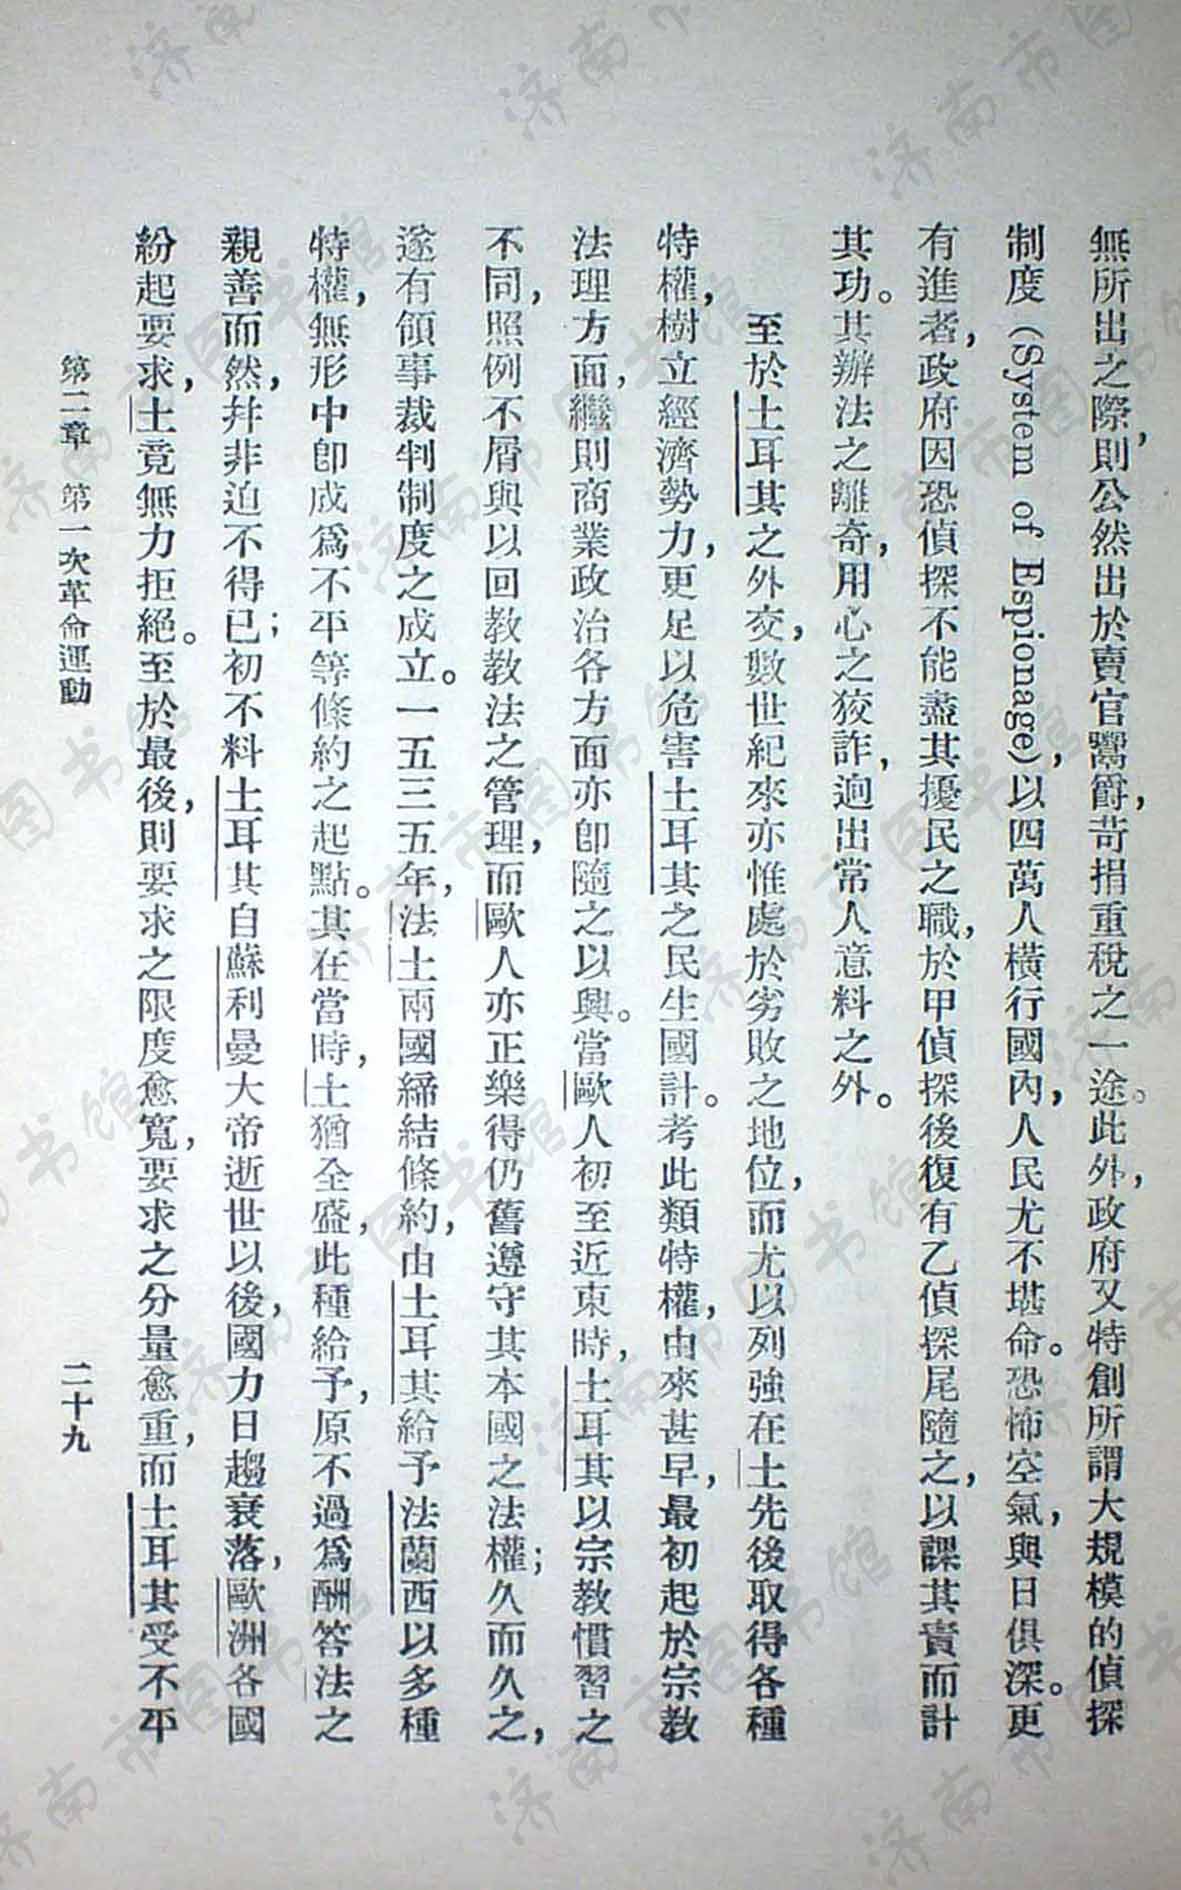 無所出之際，則公然出於賣官鬻爵，苛捐重稅之一途。此外，政府又特創所謂大規模的偵探
制度（System of Espionage），以四萬人橫行國內，人民尤不堪命。恐怖空氣，與日俱深。更
有進者，政府因恐偵探不能盡其擾民之職，於甲偵探後復有乙偵探尾隨之，以課其責而計
其功。其辦法之離奇，用心之狡詐，迥出常人意料之外。
至於土耳其之外交，數世紀來亦惟處於劣敗之地位，而尤以列強在土先後取得各種
特權，樹立經濟勢力，更足以危害土耳其之民生國計。考此類特權，由來甚早，最初起於宗教
法理方面，繼則商業政治各方面亦卽隨之以興。當歐人初至近東時，土耳其以宗教慣習之
不同，照例不屑與以回教教法之管理，而歐人亦正樂得仍舊遵守其本國之法權；久而久之，
遂有領事裁判制度之成立。一五三五年，法土兩國締結條約，由土耳其給予法蘭西以多種
特權，無形中卽成爲不平等條約之起點。其在當時，土猶全盛，此種給予，原不過爲酬答法之
親善而然，幷非迫不得已；初不料土耳其自蘇利曼大帝逝世以後，國力日趨衰落，歐洲各國
紛起要求，土竟無力拒絕。至於最後，則要求之限度愈寬，要求之分量愈重，而土耳其受不平
第二章 第一次革命運動
二十九
济南市图书馆